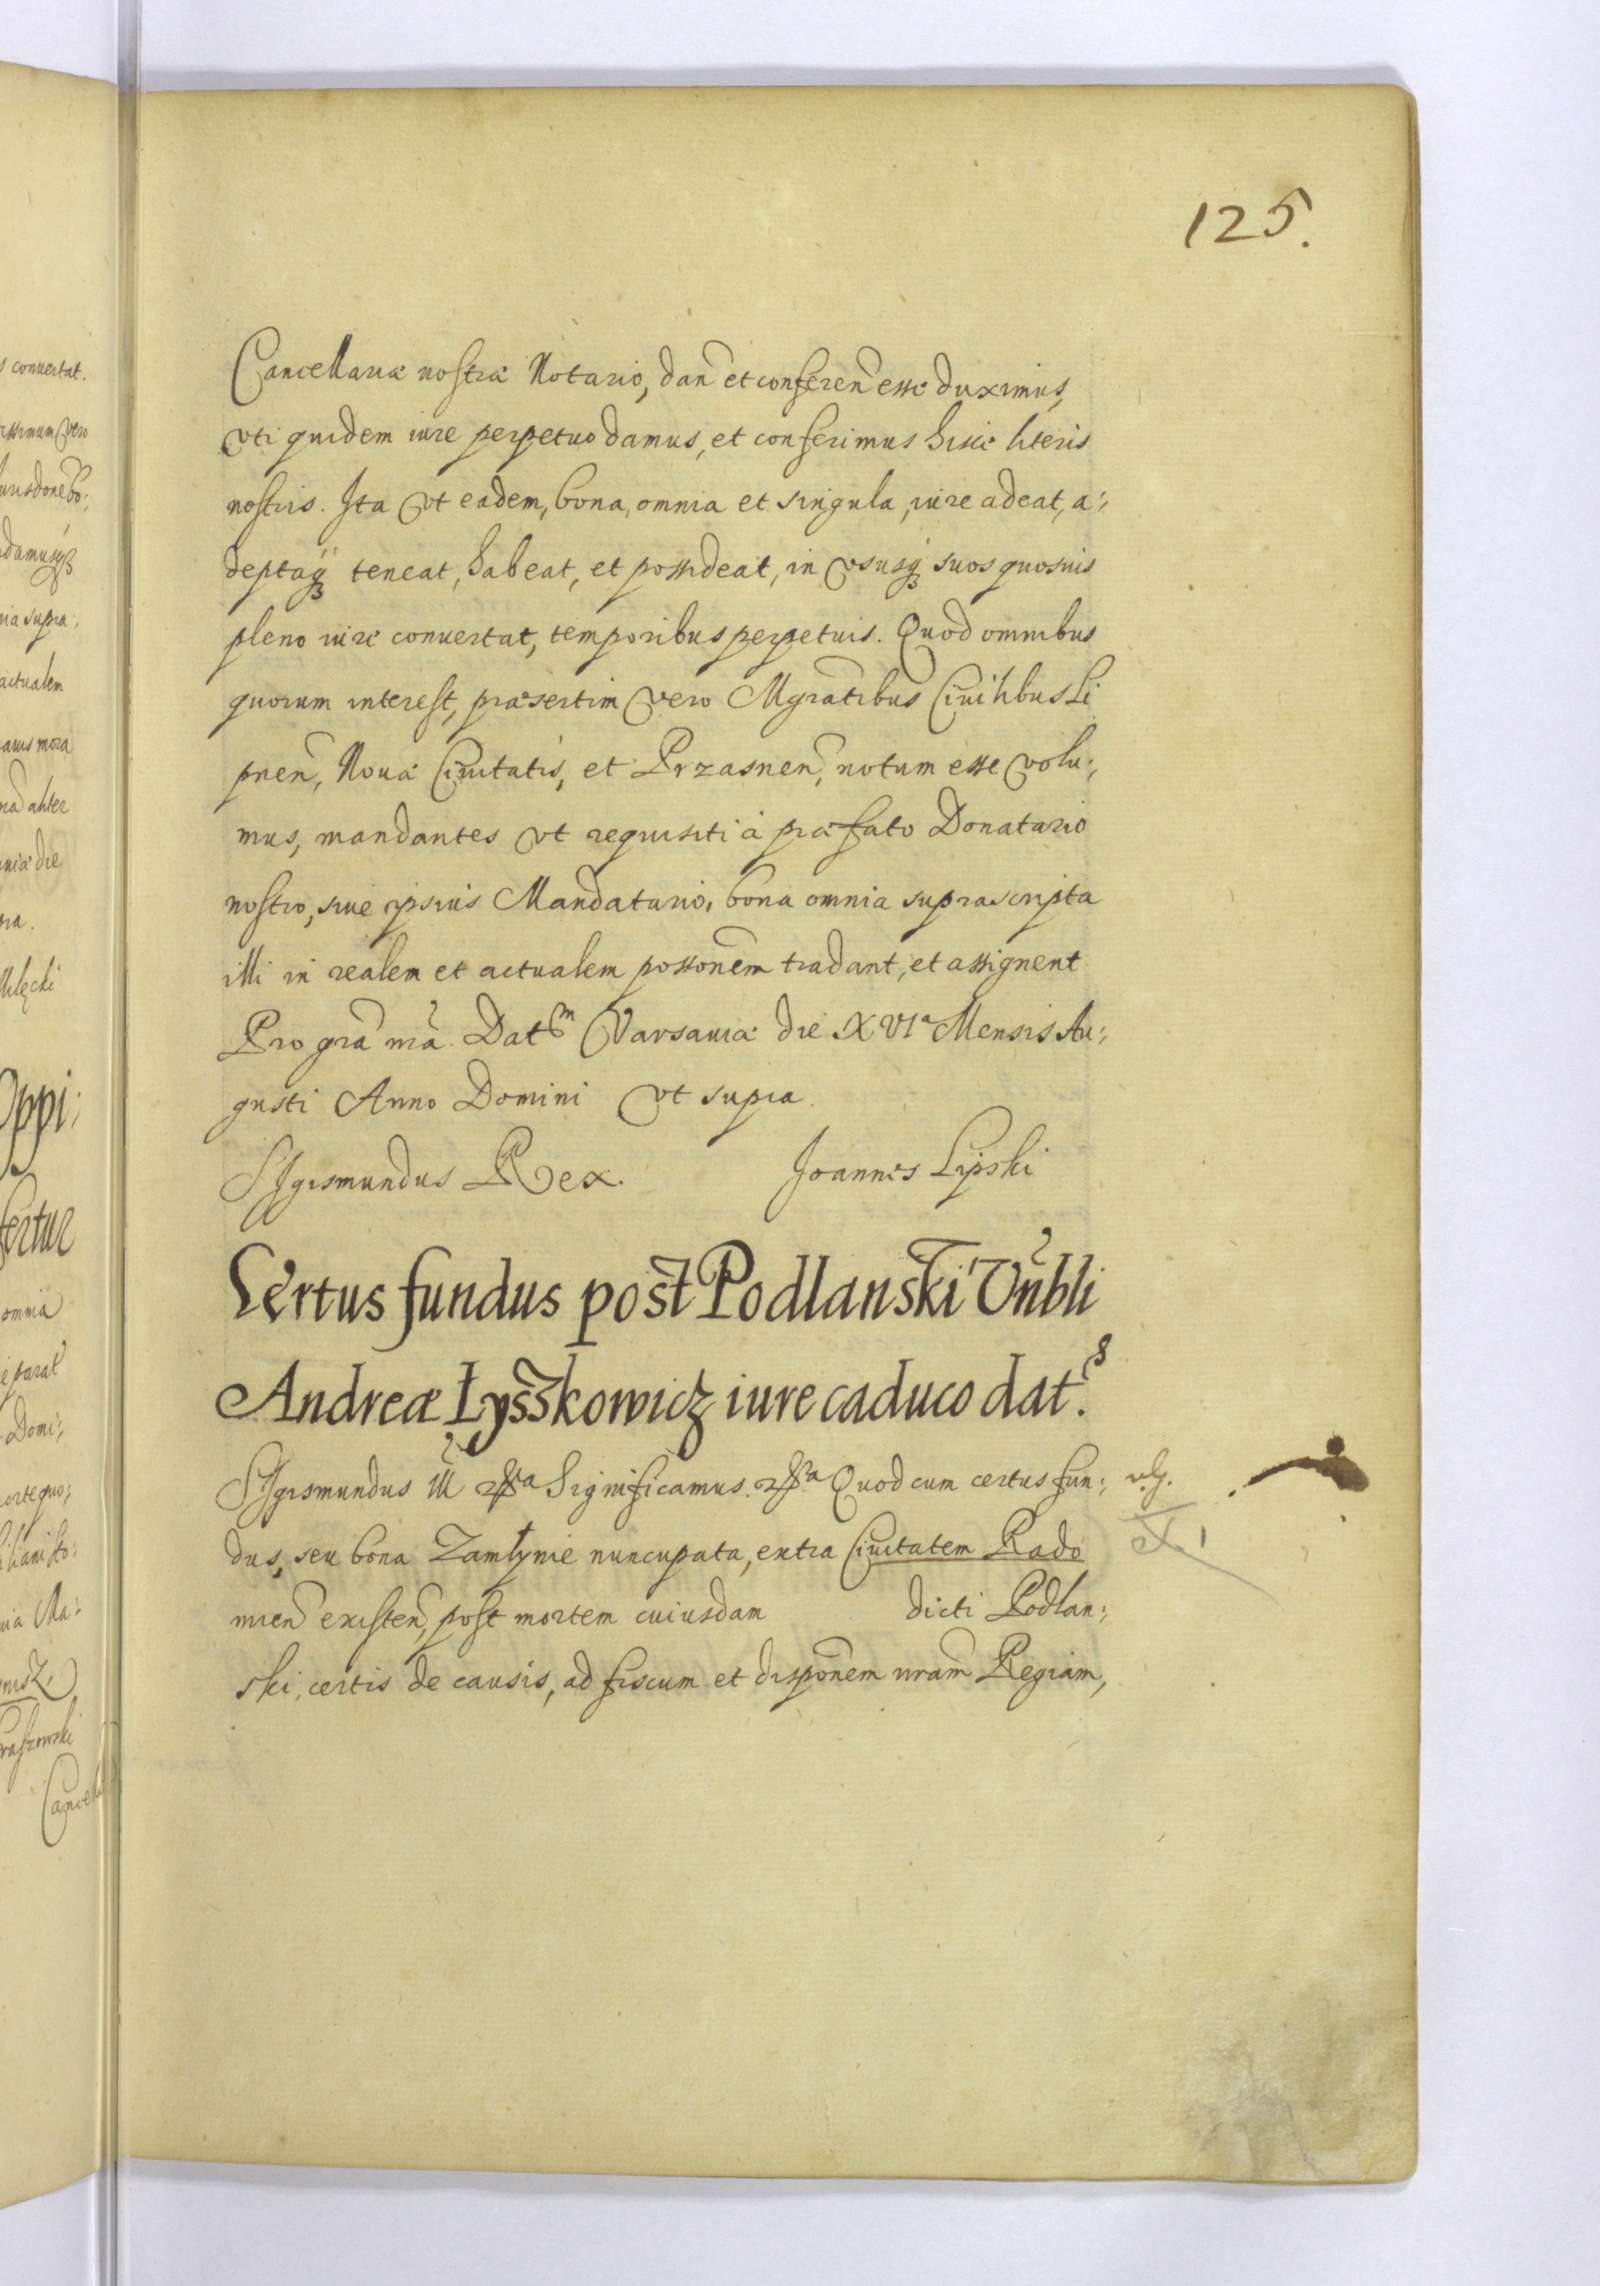 125.
Cancellariæ nostræ Notario, dan̄ et conferen̄ esse duximus,
vti quidem iure perpetuo damus, et conferimus hisce literis
nostris. Ita vt eadem, bona, omnia et singula, iure adeat, a:
deptaq̃ꝫ teneat, habeat, et possideat, in vsusqꝫ suos quosuis
pleno iure conuertat, temporibus perpetuis. Quod omnibus
quorum interest, præsertim vero Mgratibus Ciuilibus Li
pnen̄, Nouæ Ciuitatis, et Przasnen̄, notum esse volu:
mus, mandantes vt requisiti à præfato Donatario
nostro, siue ipsius Mandatario, bona omnia suprascripta
illi in realem et actualem possonem̄ tradant, et assignent
Pro gra̅ ma̅. Datm Varsauiæ die XVIa Mensis Au:
gusti Anno Domini vt supra.
Sigismundus Rex. Joannes Lipski
Certus fundus post Podlanski Vn̄bli
Andreæ Łysszkowicz iure caduco dats.
Sigismundus III Significamus. Quod cum certus fun:
dus, seu bona Zamłynie nuncupata, extra Ciuitatem Rado
mien̄ existen̄, post mortem cuiusdam dicti Podlan:
ski, certis de causis, ad fiscum et dispone̅m nram̄ Regiam,
s conuertat.
actualem
omnia